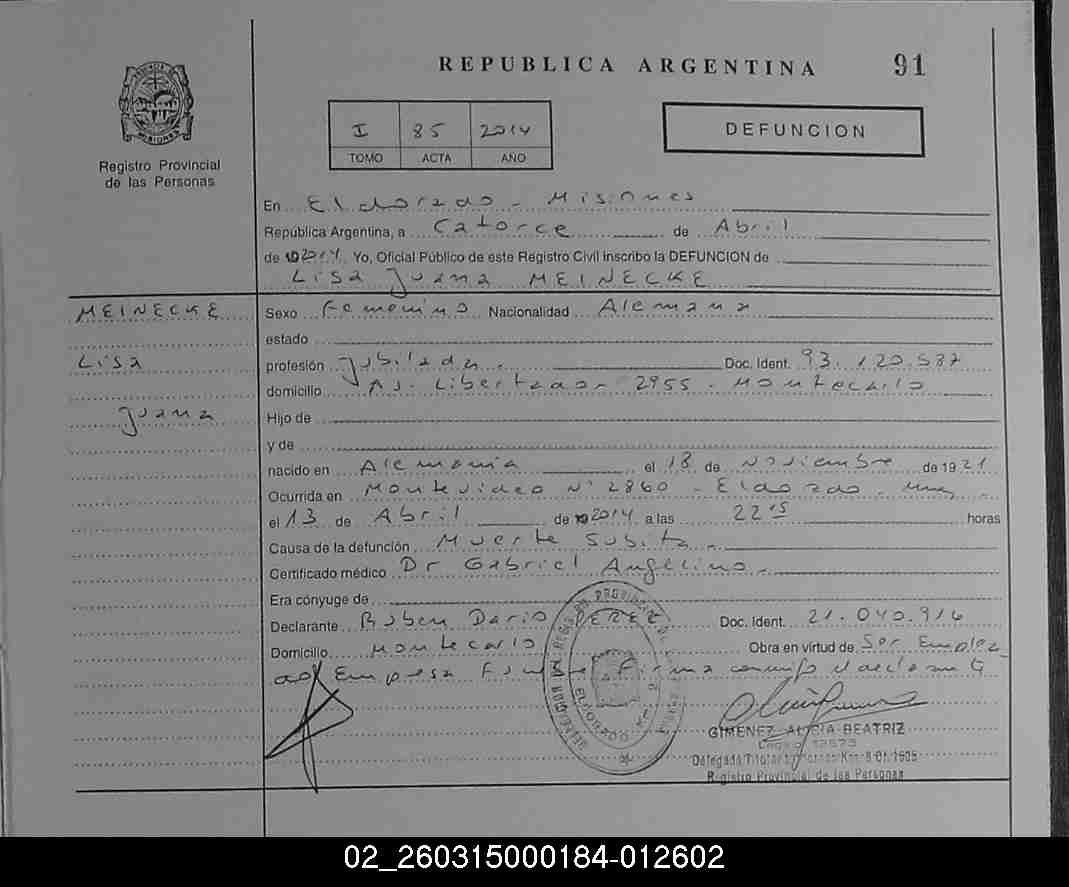 REPUBLICA ARGENTINA 91
I 85 2014
TOMO ACTA AÑO
DEFUNCION
Registro Provincial
de las Personas
En Eldorado - Misiones
República Argentina, a Catorce de Abril
de 2014 Yo, Oficial Público de este Registro Civil inscribo la DEFUNCION de
Lisa Juana MEINECKE
MEINECKE
Lisa
Juana
Sexo Femenino Nacionalidad Alemana
estado
profesión Jubilada. Doc. Ident. 93.120.587
domicilio Av. Libertador 2955 - Montecarlo
Hijo de
y de
nacido en Alemania el 18 de Noviembre de 1921
Ocurrida en Montevideo N° 2860 - Eldorado -
el 13 de Abril de 2014 a las 22 15 horas
Causa de la defunción Muerte Subita -
Certificado médico Dr Gabriel Angelino -
Era cónyuge de
Declarante Ruben Dario PEREZ Doc. Ident. 21.040.916
Domicilio Montecarlo Obra en virtud de Ser Emplea
do Empresa Firma conmigo el declarante
GIMENEZ, ALICIA BEATRIZ
Registro Provincial de las Personas
02_260315000184-012602